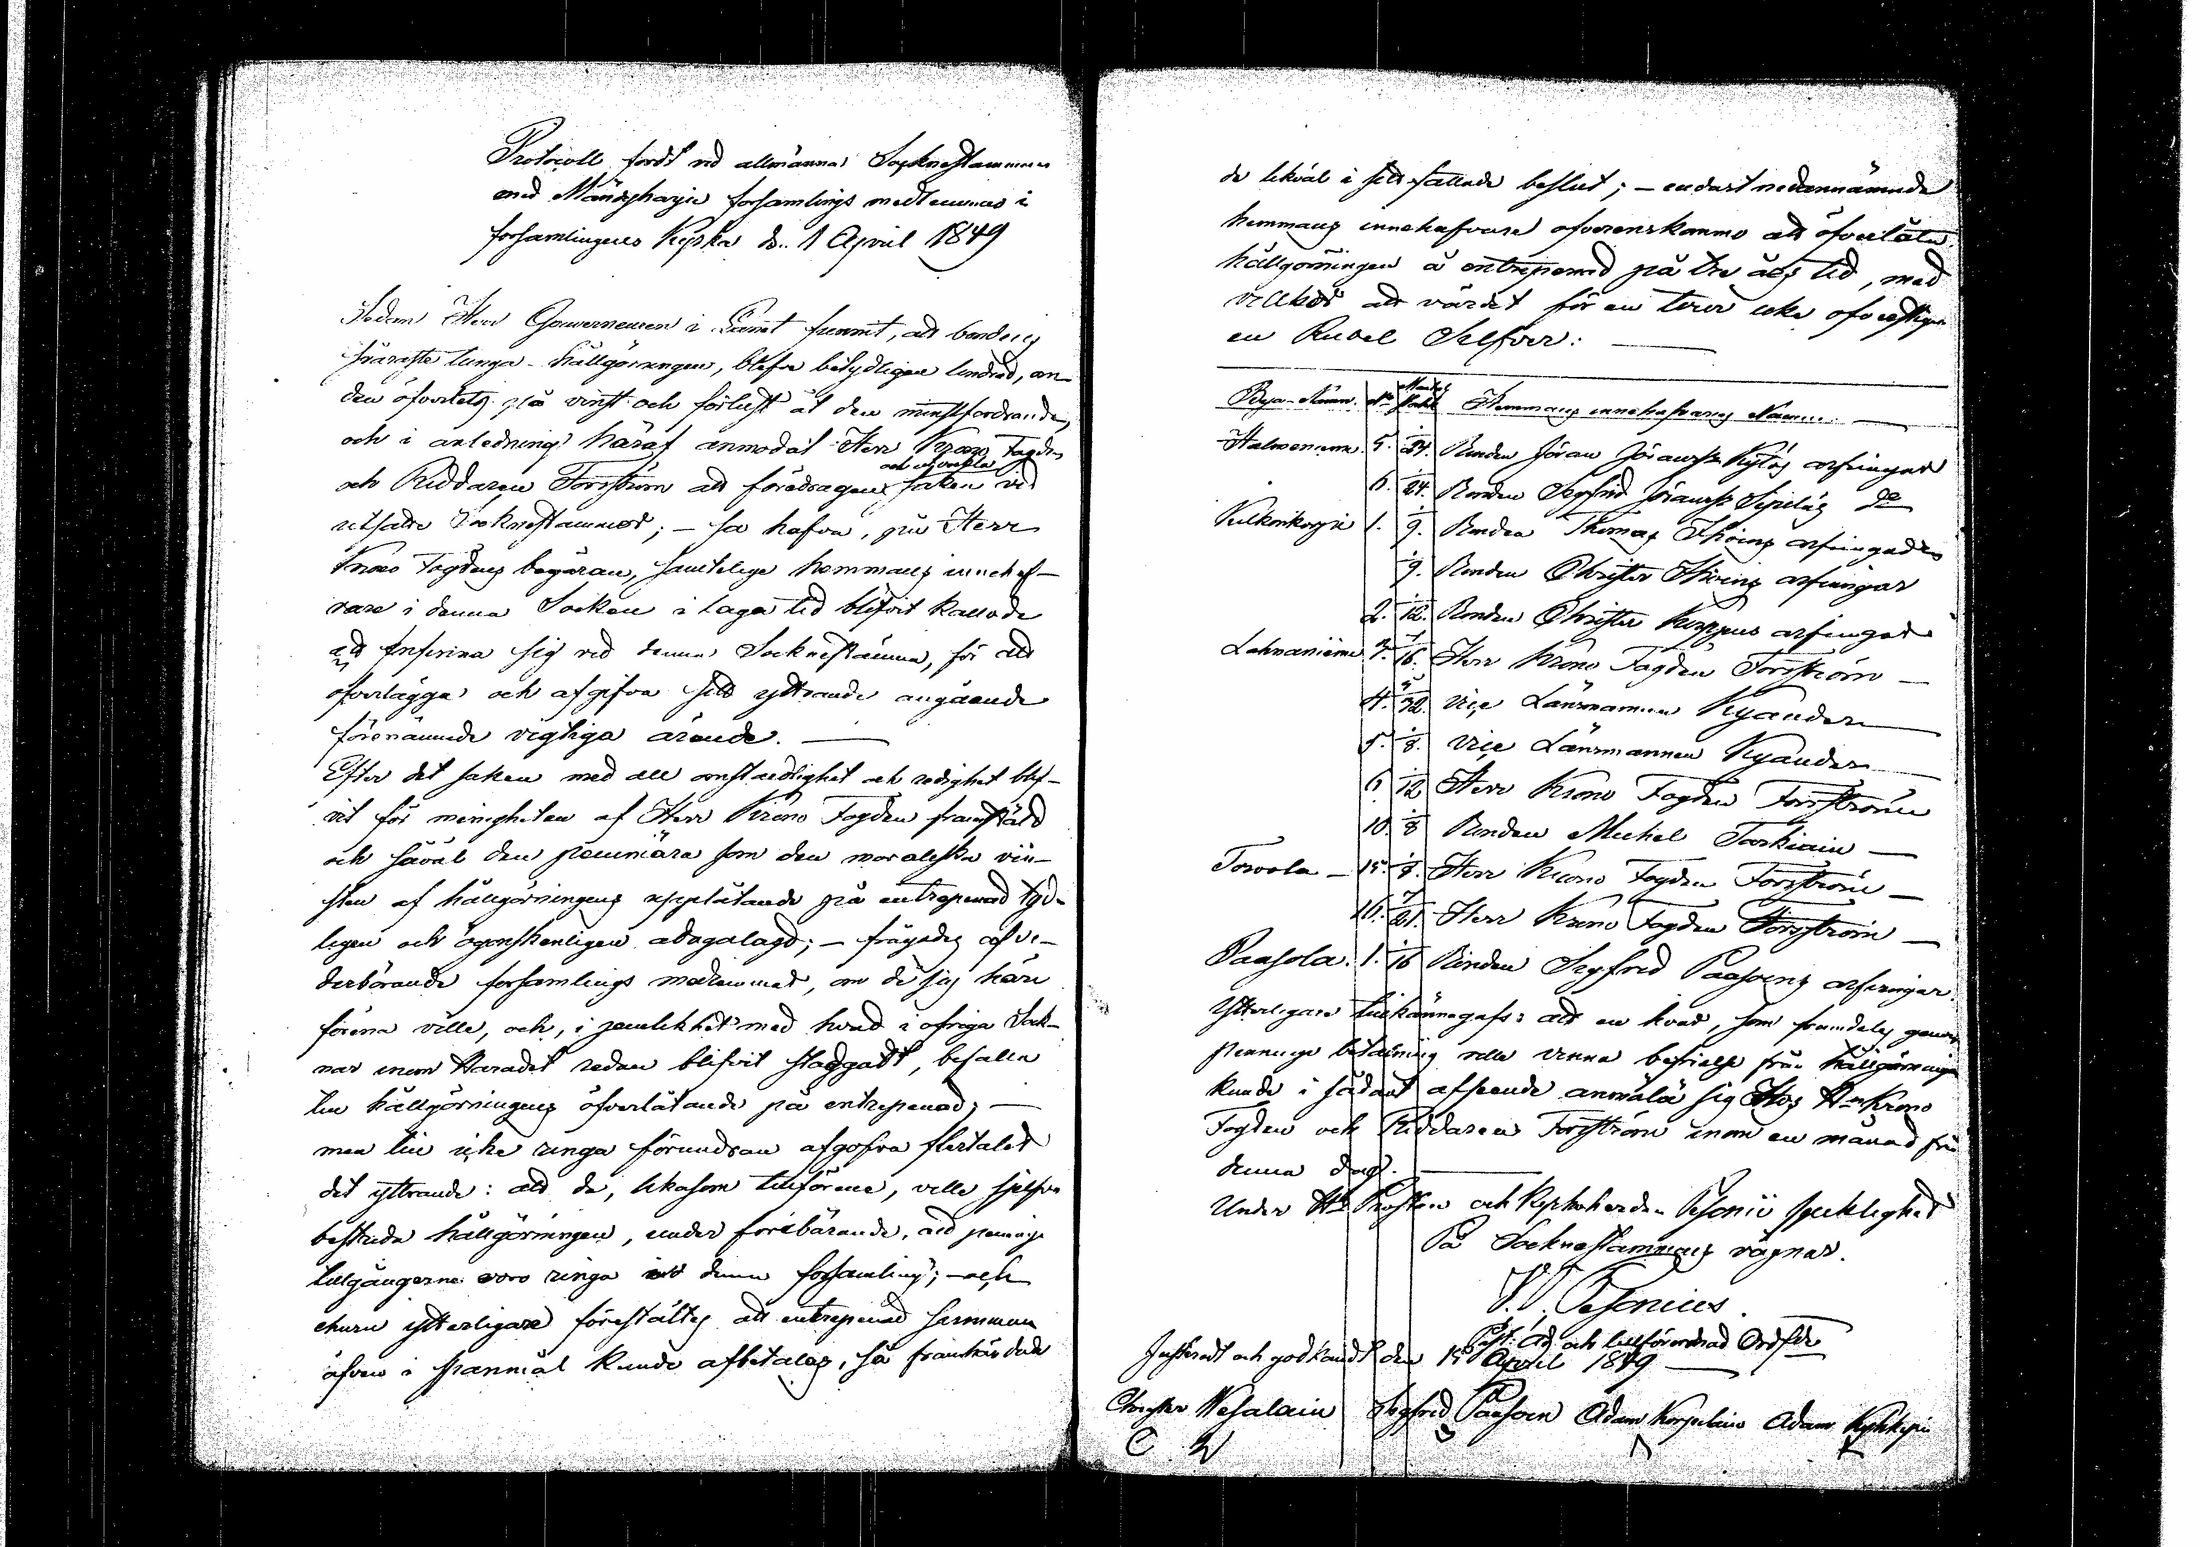 Protocoll fördt vid allmänna Sockneställman
med Mändyharju församlings medlemmar i
församlingenes Kyrka d. 1 April 1849
Sedan Herr Gouverneuren i Länet funnit, att bondens
svåraste tunga - hållgörningen, blefve betydligen lindrad, om
den öfverläts på vinst och förlust åt den minstfordrande,
och i anledning häraf anmodat Herr Krono Fogden
och Riddaren Forsström att föredraga och utveckla saken vid
utsatte Sockneställmor; - så hafva, på Herr
Krono Fogdens begäran, samtelige hemmans innehaf-
vare i denna Socken i laga tid blifvit kallade
att infinna sig vid denna Sockneställma, för att
öfverlägga och afgifva sitt yttrande angående
förenämnde vigtiga ärende. —
Efter det saken med all omständlighet och redighet blif-
vit för menigheten af Herr Krono Fogden framstäld
och såväl den pecuniära som den moraliska vin-
sten af hållgörningens upplåtande på entreprenad tyd-
ligen och ögonskenligen ådagalagd; - frågades af ve-
derbörande församlings medlemmar, om de sig häri
förena ville, och, i jemlikhet med hvad i öfriga Sock-
nar inom Häradet redan blifvit stadgadt, befalla
till hållgörningens öfverlåtande på entreprenad; —
men till icke ringa förundran afgofvo flertalet
det yttrande: att de, likasom tillförene, ville sjelfva
bestrida hållgörningen, under förebärande, att peninge
tillgångarne voro ringa uti denna församling; - och
ehuru ytterligare föreställtes att entreprenad summan
äfven i spannmål kunde afbetalas, så framhärdade
de likväl i sitt fattade beslut; - endast nedannämnde
hemmans innehafvare öfverenskommo att öfverlåta
hållgörningen å entreprenad på tre års tid, med
villkor att värdet för en tour icke öfverstiger
en Rubel Silfver: —
Bya-Namn. No Mantal Hemmans innehafvares Namn. —
Halmeniemi. 5. 1/24. Bonden Jöran Jöransson Kylös arfvingar
6. 1/24. Bonden Segfrid Jöransson Sipiläs do
Pulkonkorpi 1. 1/9. Bonden Thomas Ihoins arfvingar
1/9. Bonden Christer Ihoins arfvingar
2. 1/12. Bonden Christer Korppus arfvingar
Lahnaniemi 2. 1/16. Herr Krono Fogden Forsström —
4. 5/32. Vice Länsmannen Kyander —
5. 1/8. Vice Länsmannen Kyander
6 1/12 Herr Krono Fogden Forsström
10. 1/8 Bonden Michel Tarkiain —
Toivola — 15. 1/8. Herr Krono Fogden Forsström —
16. 7/24. Herr Krono Fogden Forsström —
Paasola. 1. 1/16 Bonden Segfrid Paasoens arfvingar.
Ytterligare tillkännagafs: att en hvar, som framdeles genom
pennings betalning ville vinna befrielse från hållgörningen
kunde i sådant afseende anmäla sig hos Hr Krono
Fogden och Riddaren Forsström inom en månad från
denna dag. —
Under Hr Prosten och Kyrkoherden Pesonii sjuklighet
På Sockneställmans vägnar.
Pesonius.
Past. Adj. och tillförordnad Ordförde
Justeradt och godkändt den 15 April 1849 —
Christer Wesalain Segfrid Paasoen Adam Korpelain Adam Kykkyri